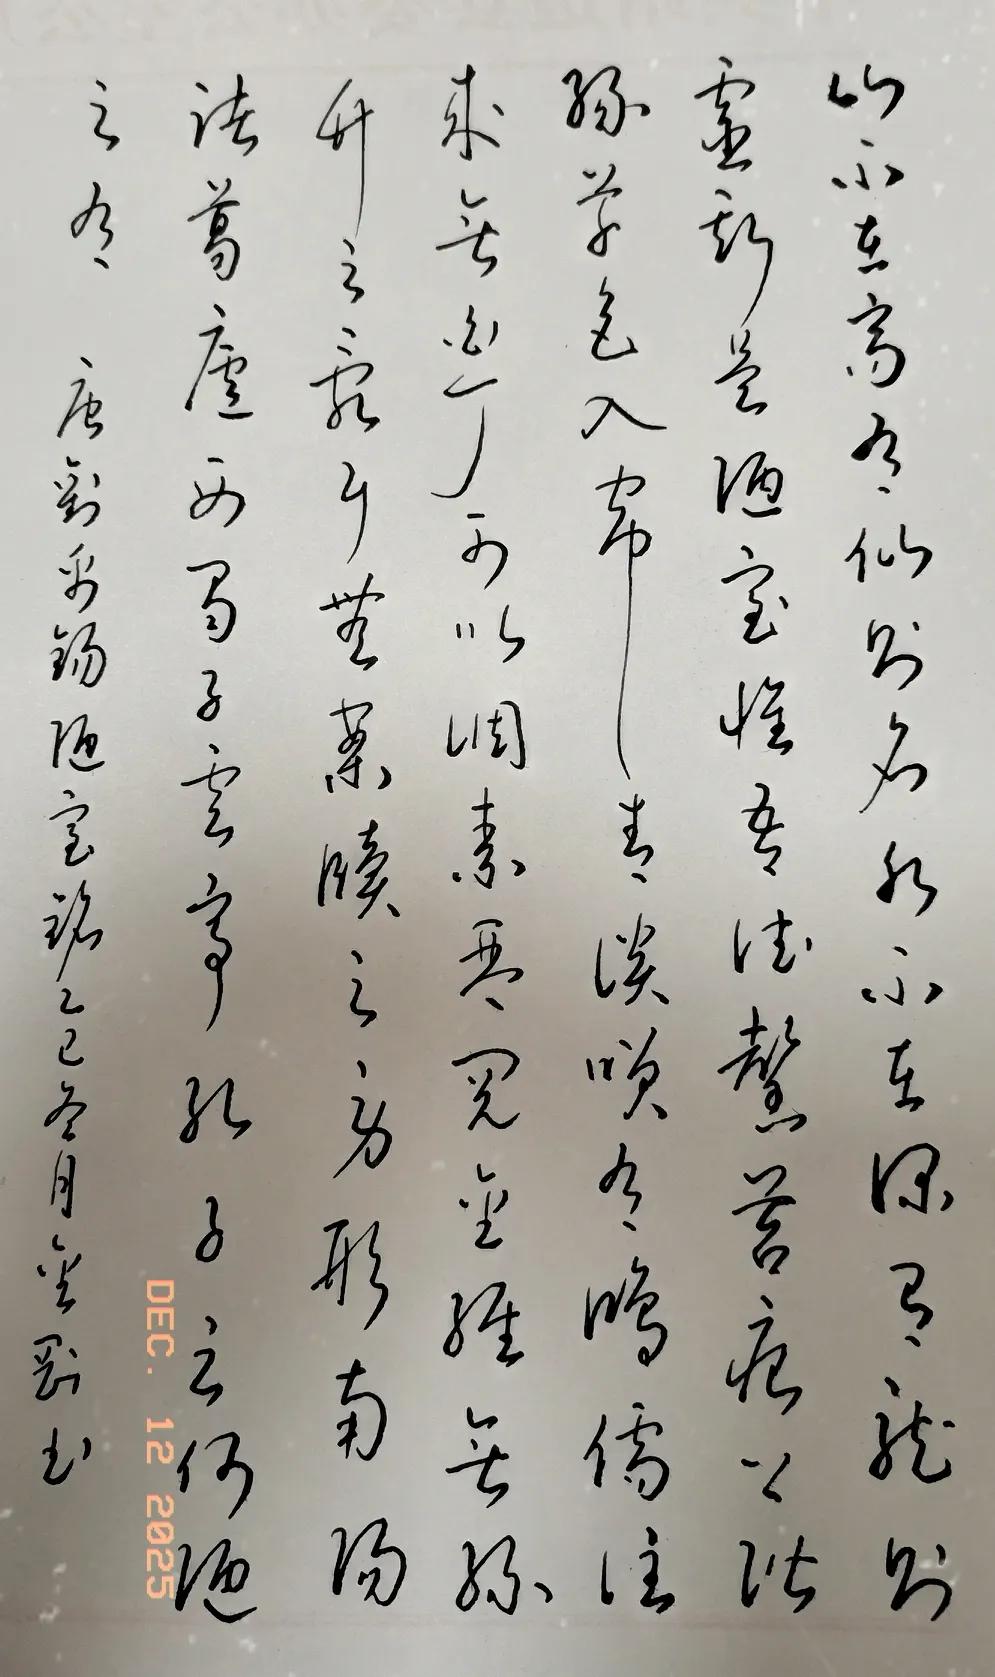 山不在高有仙則名水不在深有龍則
靈斯是陋室惟吾德馨苔痕上階
綠草色入簾青談笑有鴻儒往
來無白丁可以調素琴閱金經無絲
竹之亂耳無案牘之勞形南陽
諸葛廬西蜀子雲亭孔子云何陋
之有 唐劉禹錫陋室銘乙巳冬月金剛書
DEC. 12 2025